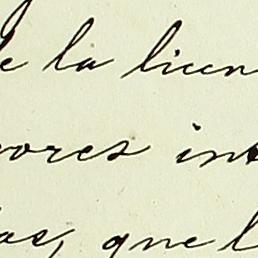 de la licen
ores in
as, que l